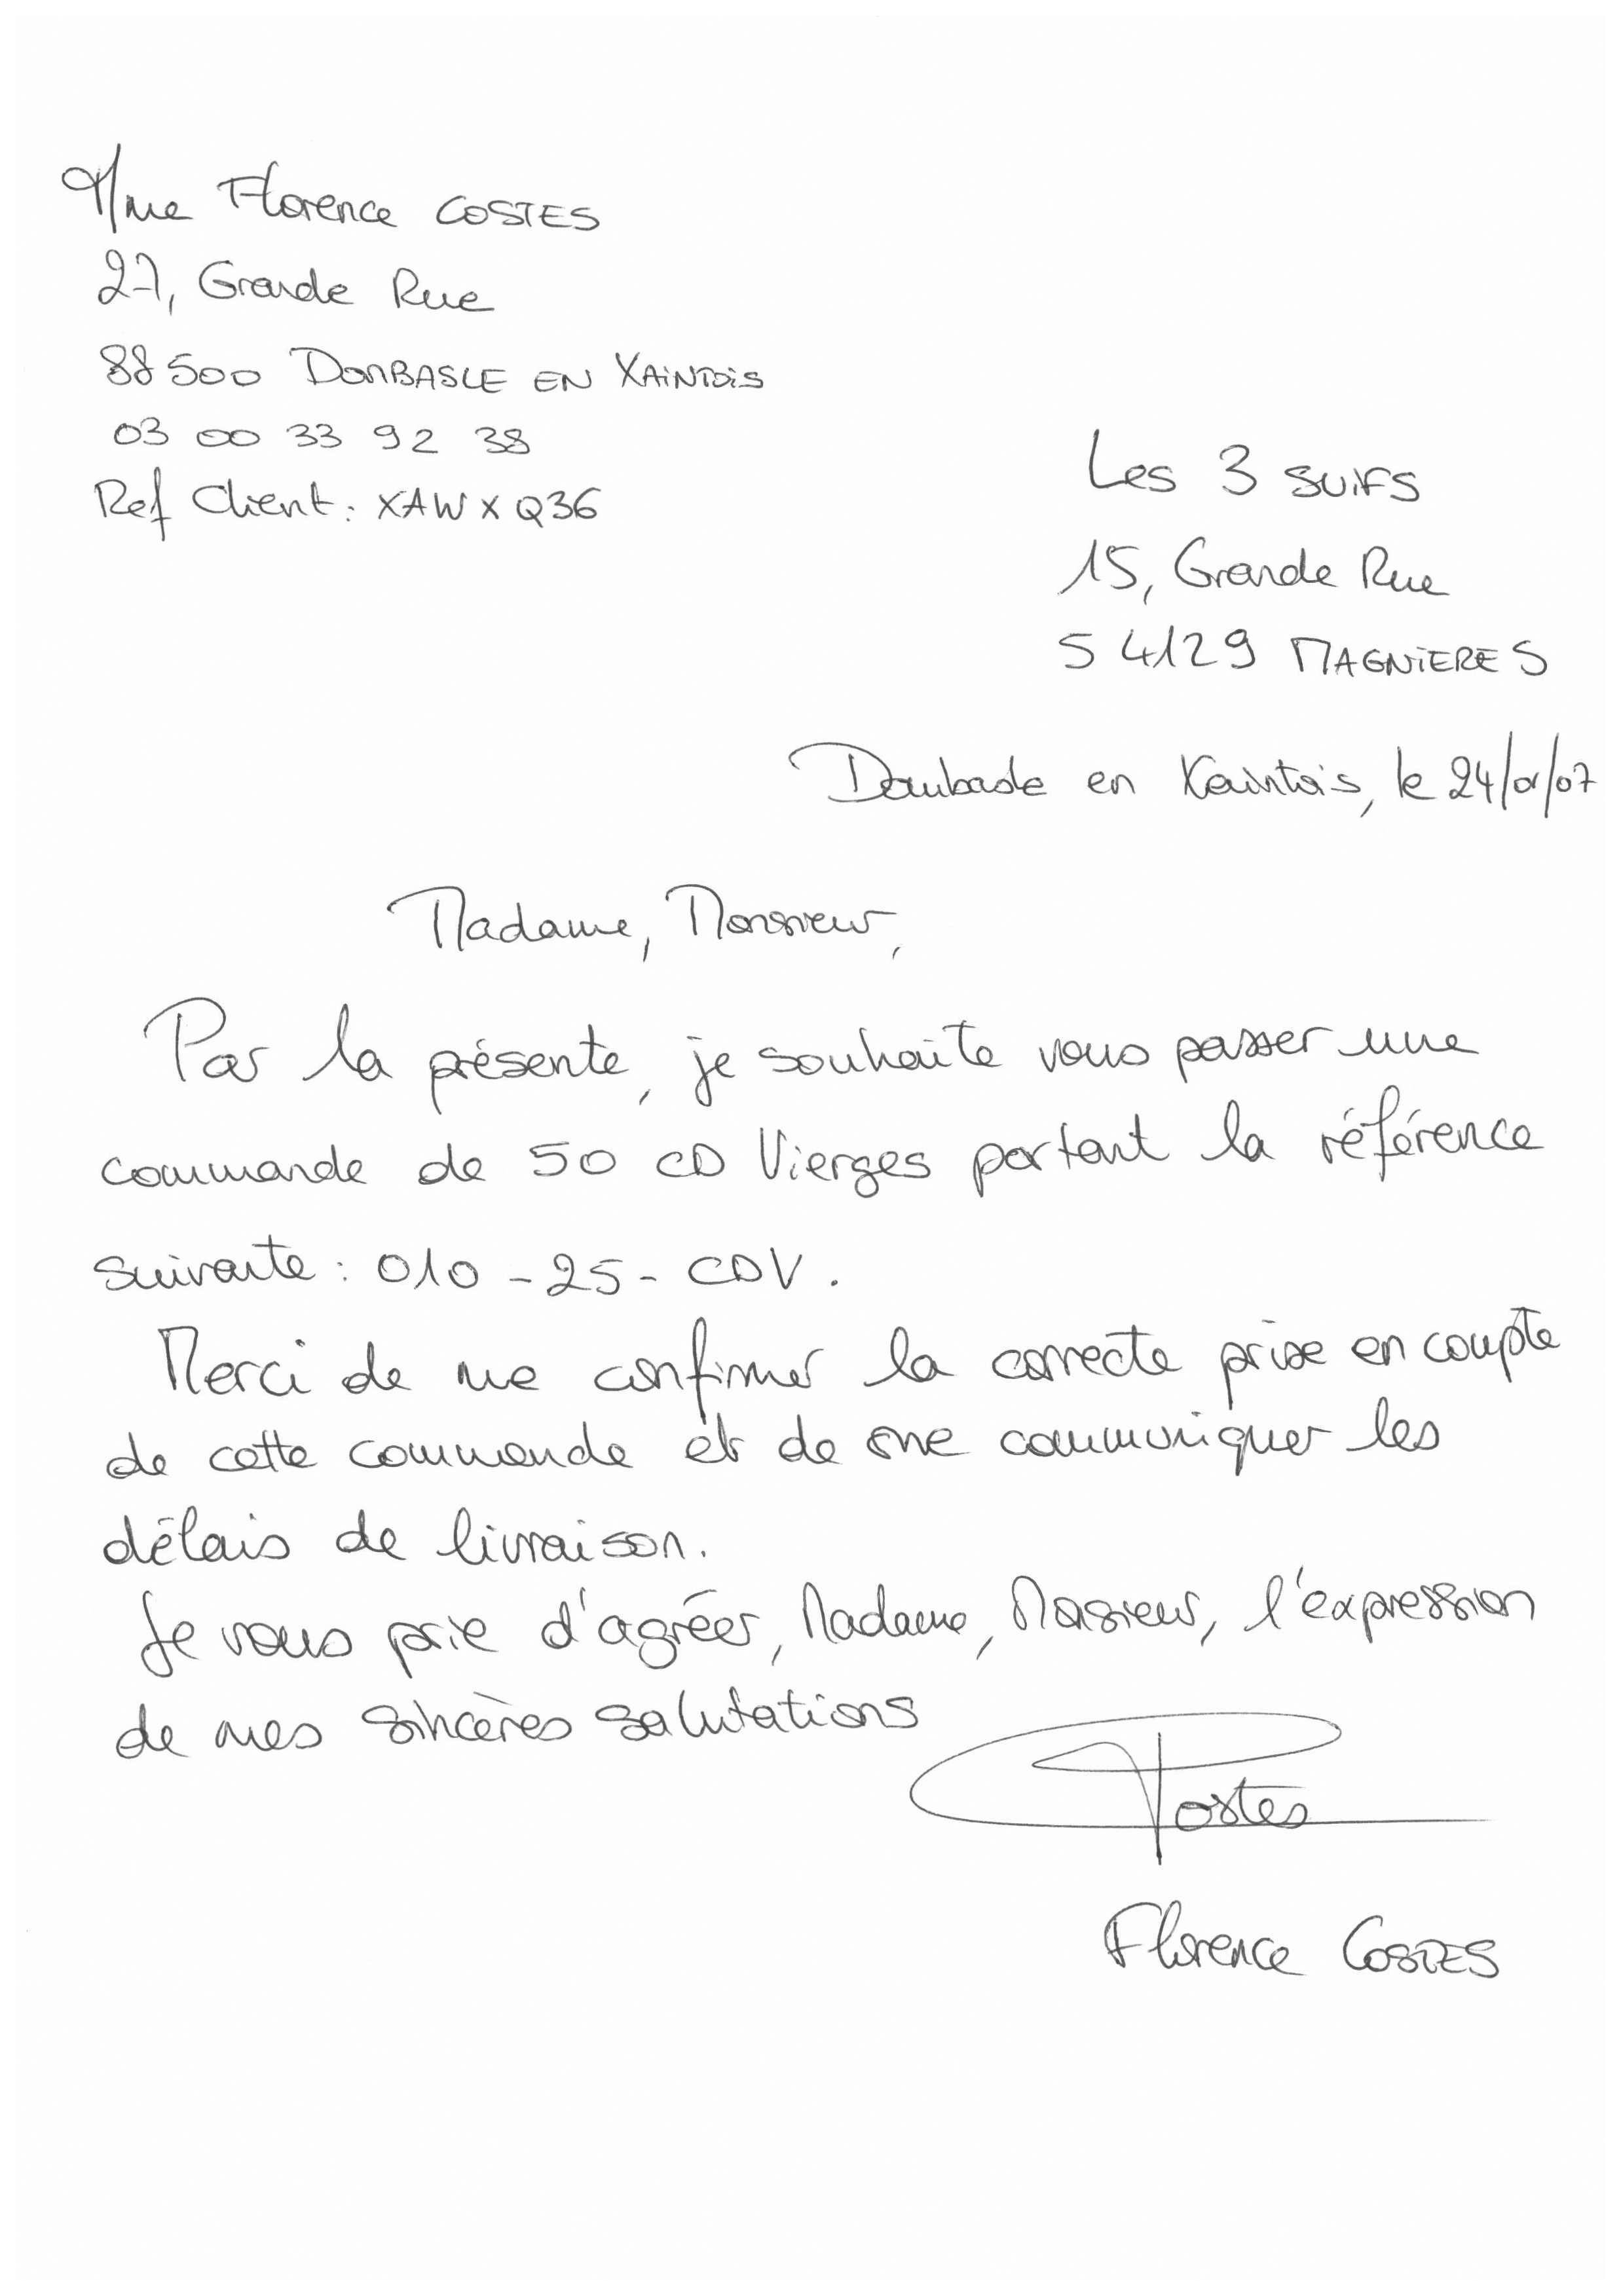 Mme Florence COSTES
27, Grande Rue
88500 DOMBASLE EN XAINTOIS
03 00 33 92 38
Ref Client : XAWXQ36
Les 3 SUIFS
15, Grande Rue
54129 MAGNIERES
Dombasle en Xaintois, le 24/01/07
Madame, Monsieur,
Par la présente, je souhaite vous passer une
commande de 50 CD Vierges portant la référence
suivante : 010-25-CDV.
Merci de me confirmer la correcte prise en compte
de cette commande et de me communiquer les
délais de livraison.
Je vous prie d'agréer, Madame, Monsieur, l'expression
de mes sincères salutations
Costes
Florence COSTES